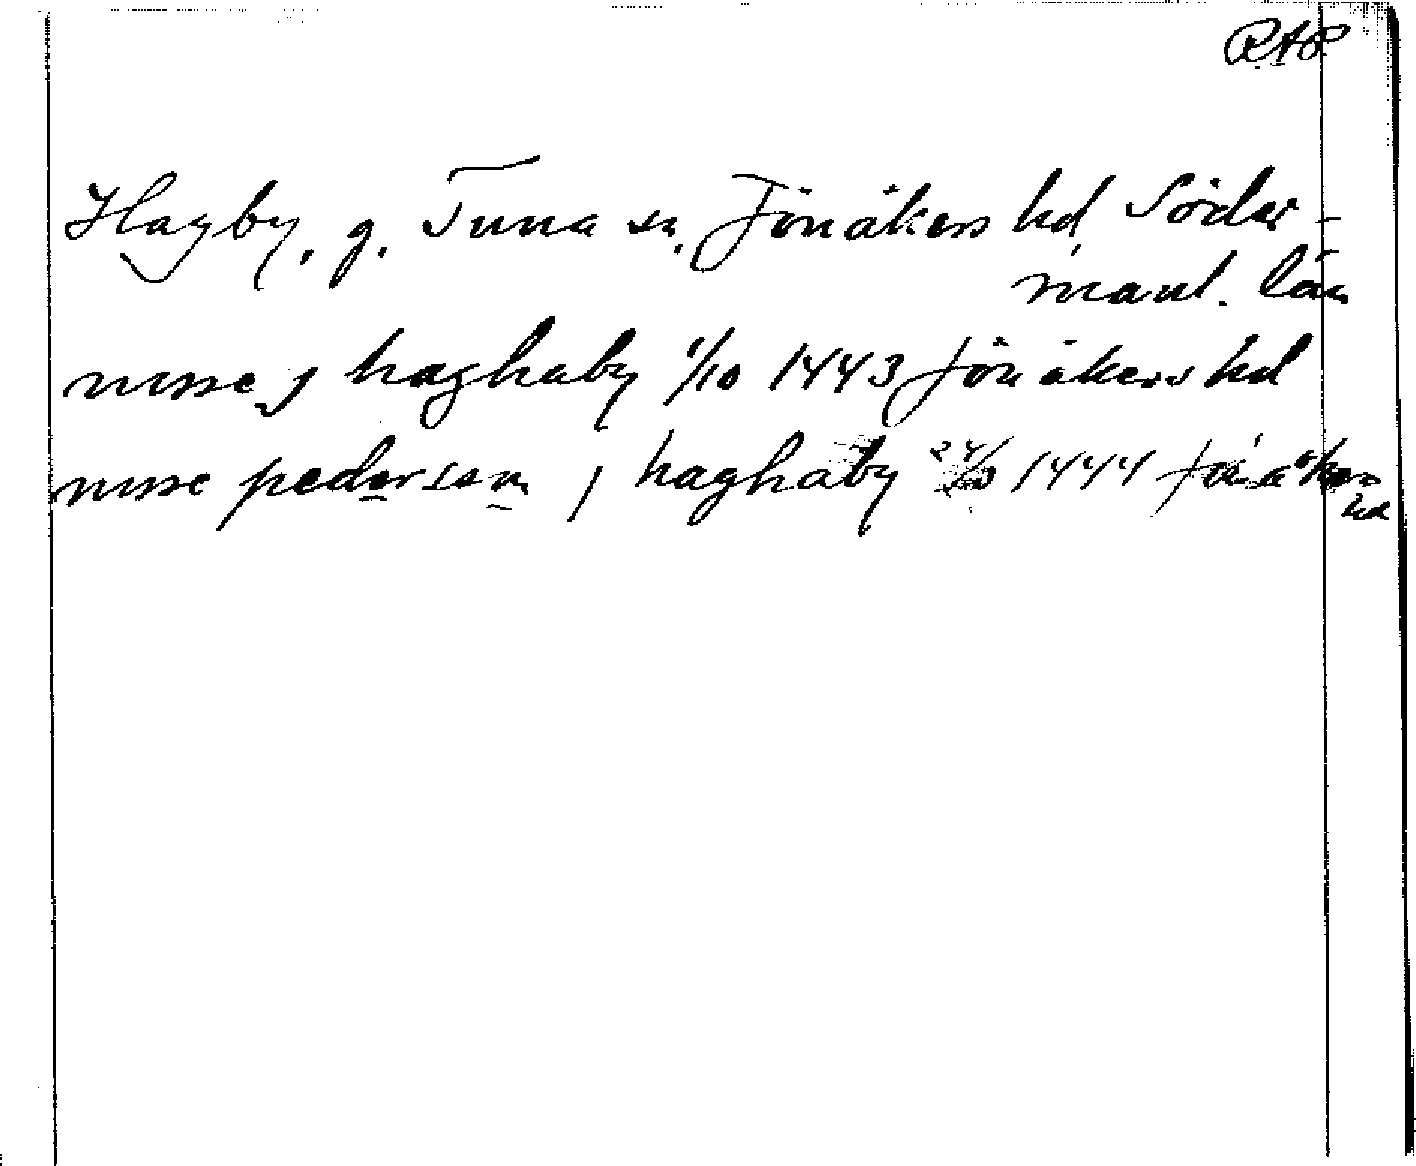 RAp
Hagby, g. Tuna sn, Jönåkers hd, Söder-
manl. län
nisse j haghaby 1/10 1443 Jönåkers hd
nisse pederson j haghaby 1444 Jönåkers
hd